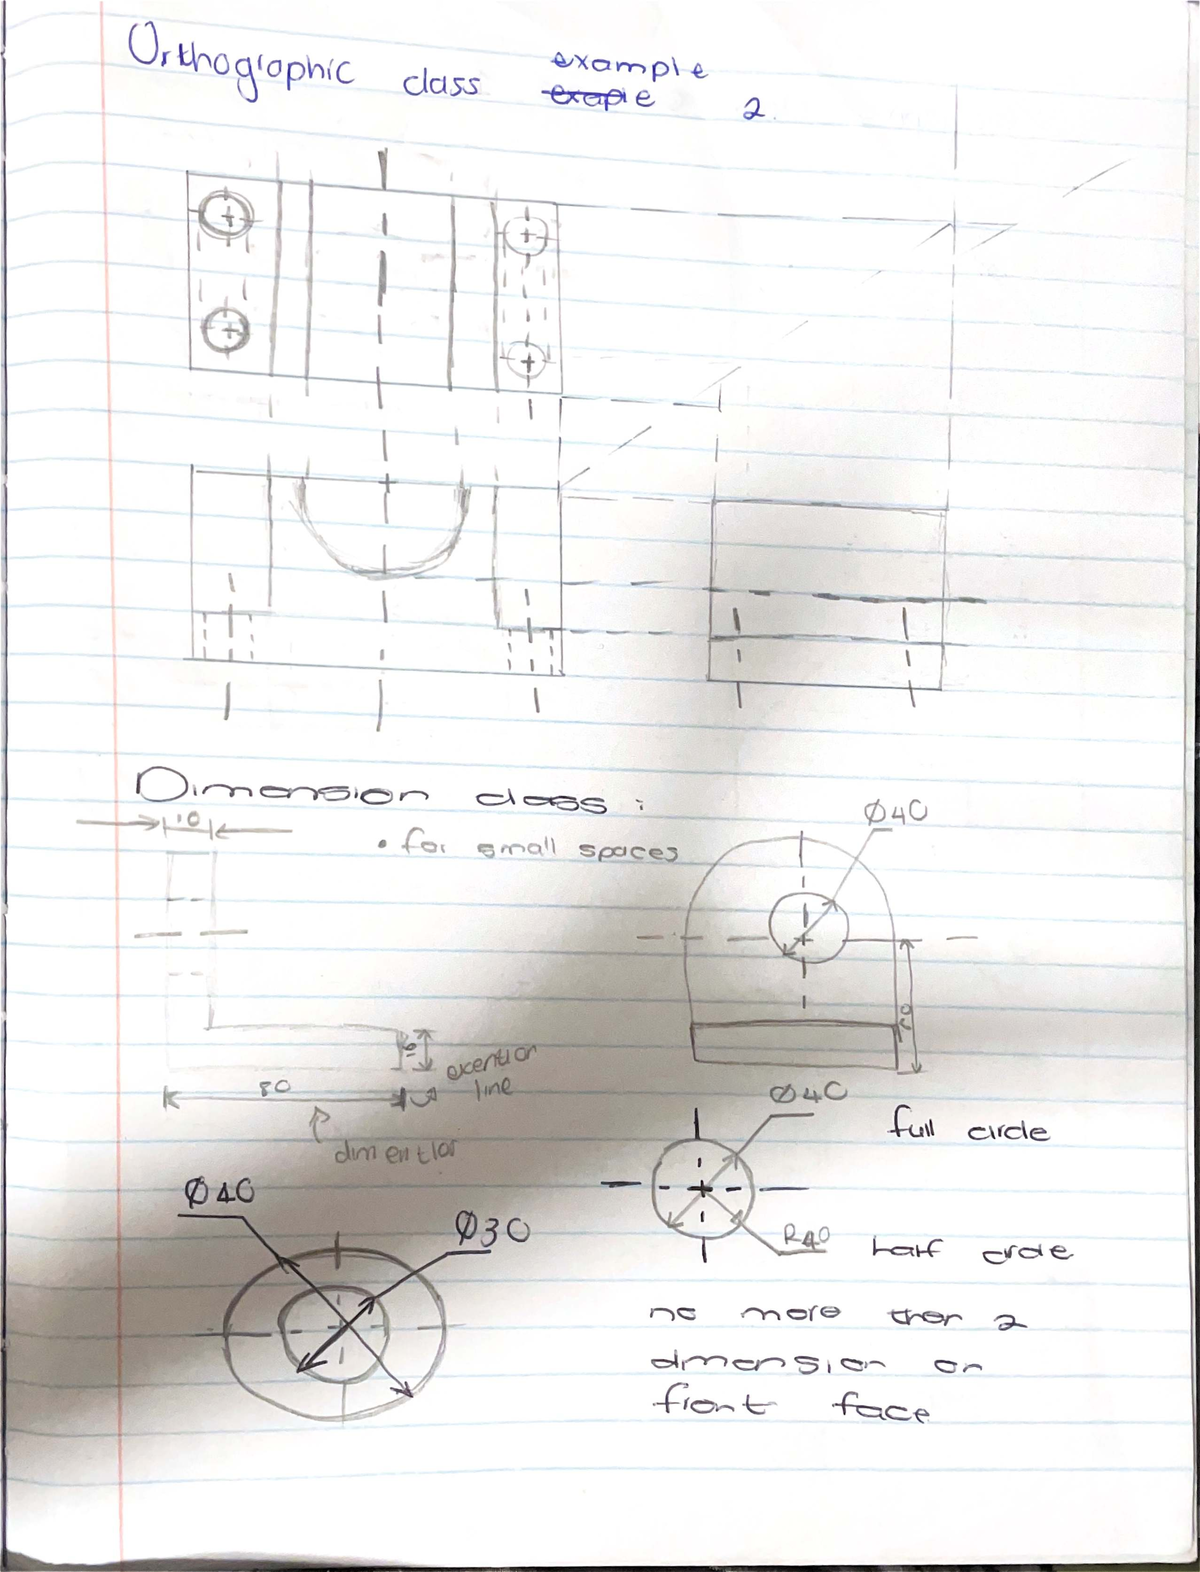 Orthographic class example
exapie 2.
Dimension class :
10
• for small spaces
Ø40
80
line
Ø40
full circle
Ø40
Ø30
R40 half circle
no more then 2
dimension on
front face